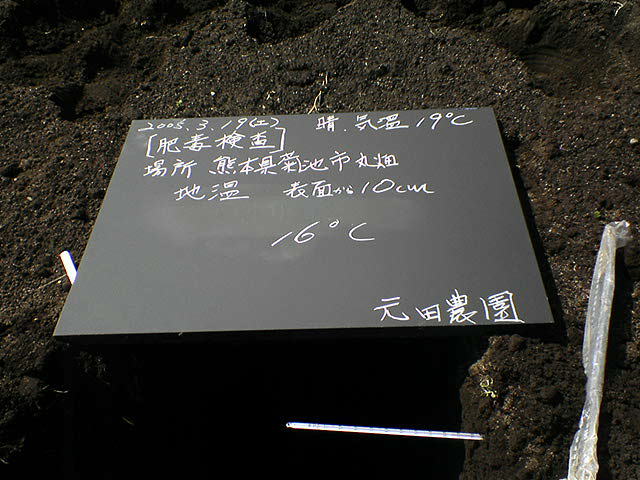 2005.3.19(土) 晴.気温19℃
[肥毒検査]
場所 熊本県菊池市丸畑
地温 表面から10cm
16℃
元田農園